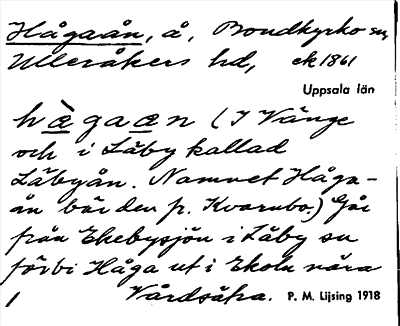 Hågaån, å, Bondkyrko sn,
Ulleråkers hd, ek 1861
Uppsala län
hægaæn (I Vänge
och i Läby kallad
Läbyån. Namnet Håga-
ån bär den fr. Kvarnbo.) Går
från Ekebysjön i Läby sn
förbi Håga ut i Ekoln nära
Vårdsätra. P. M. Lijsing 1918
1